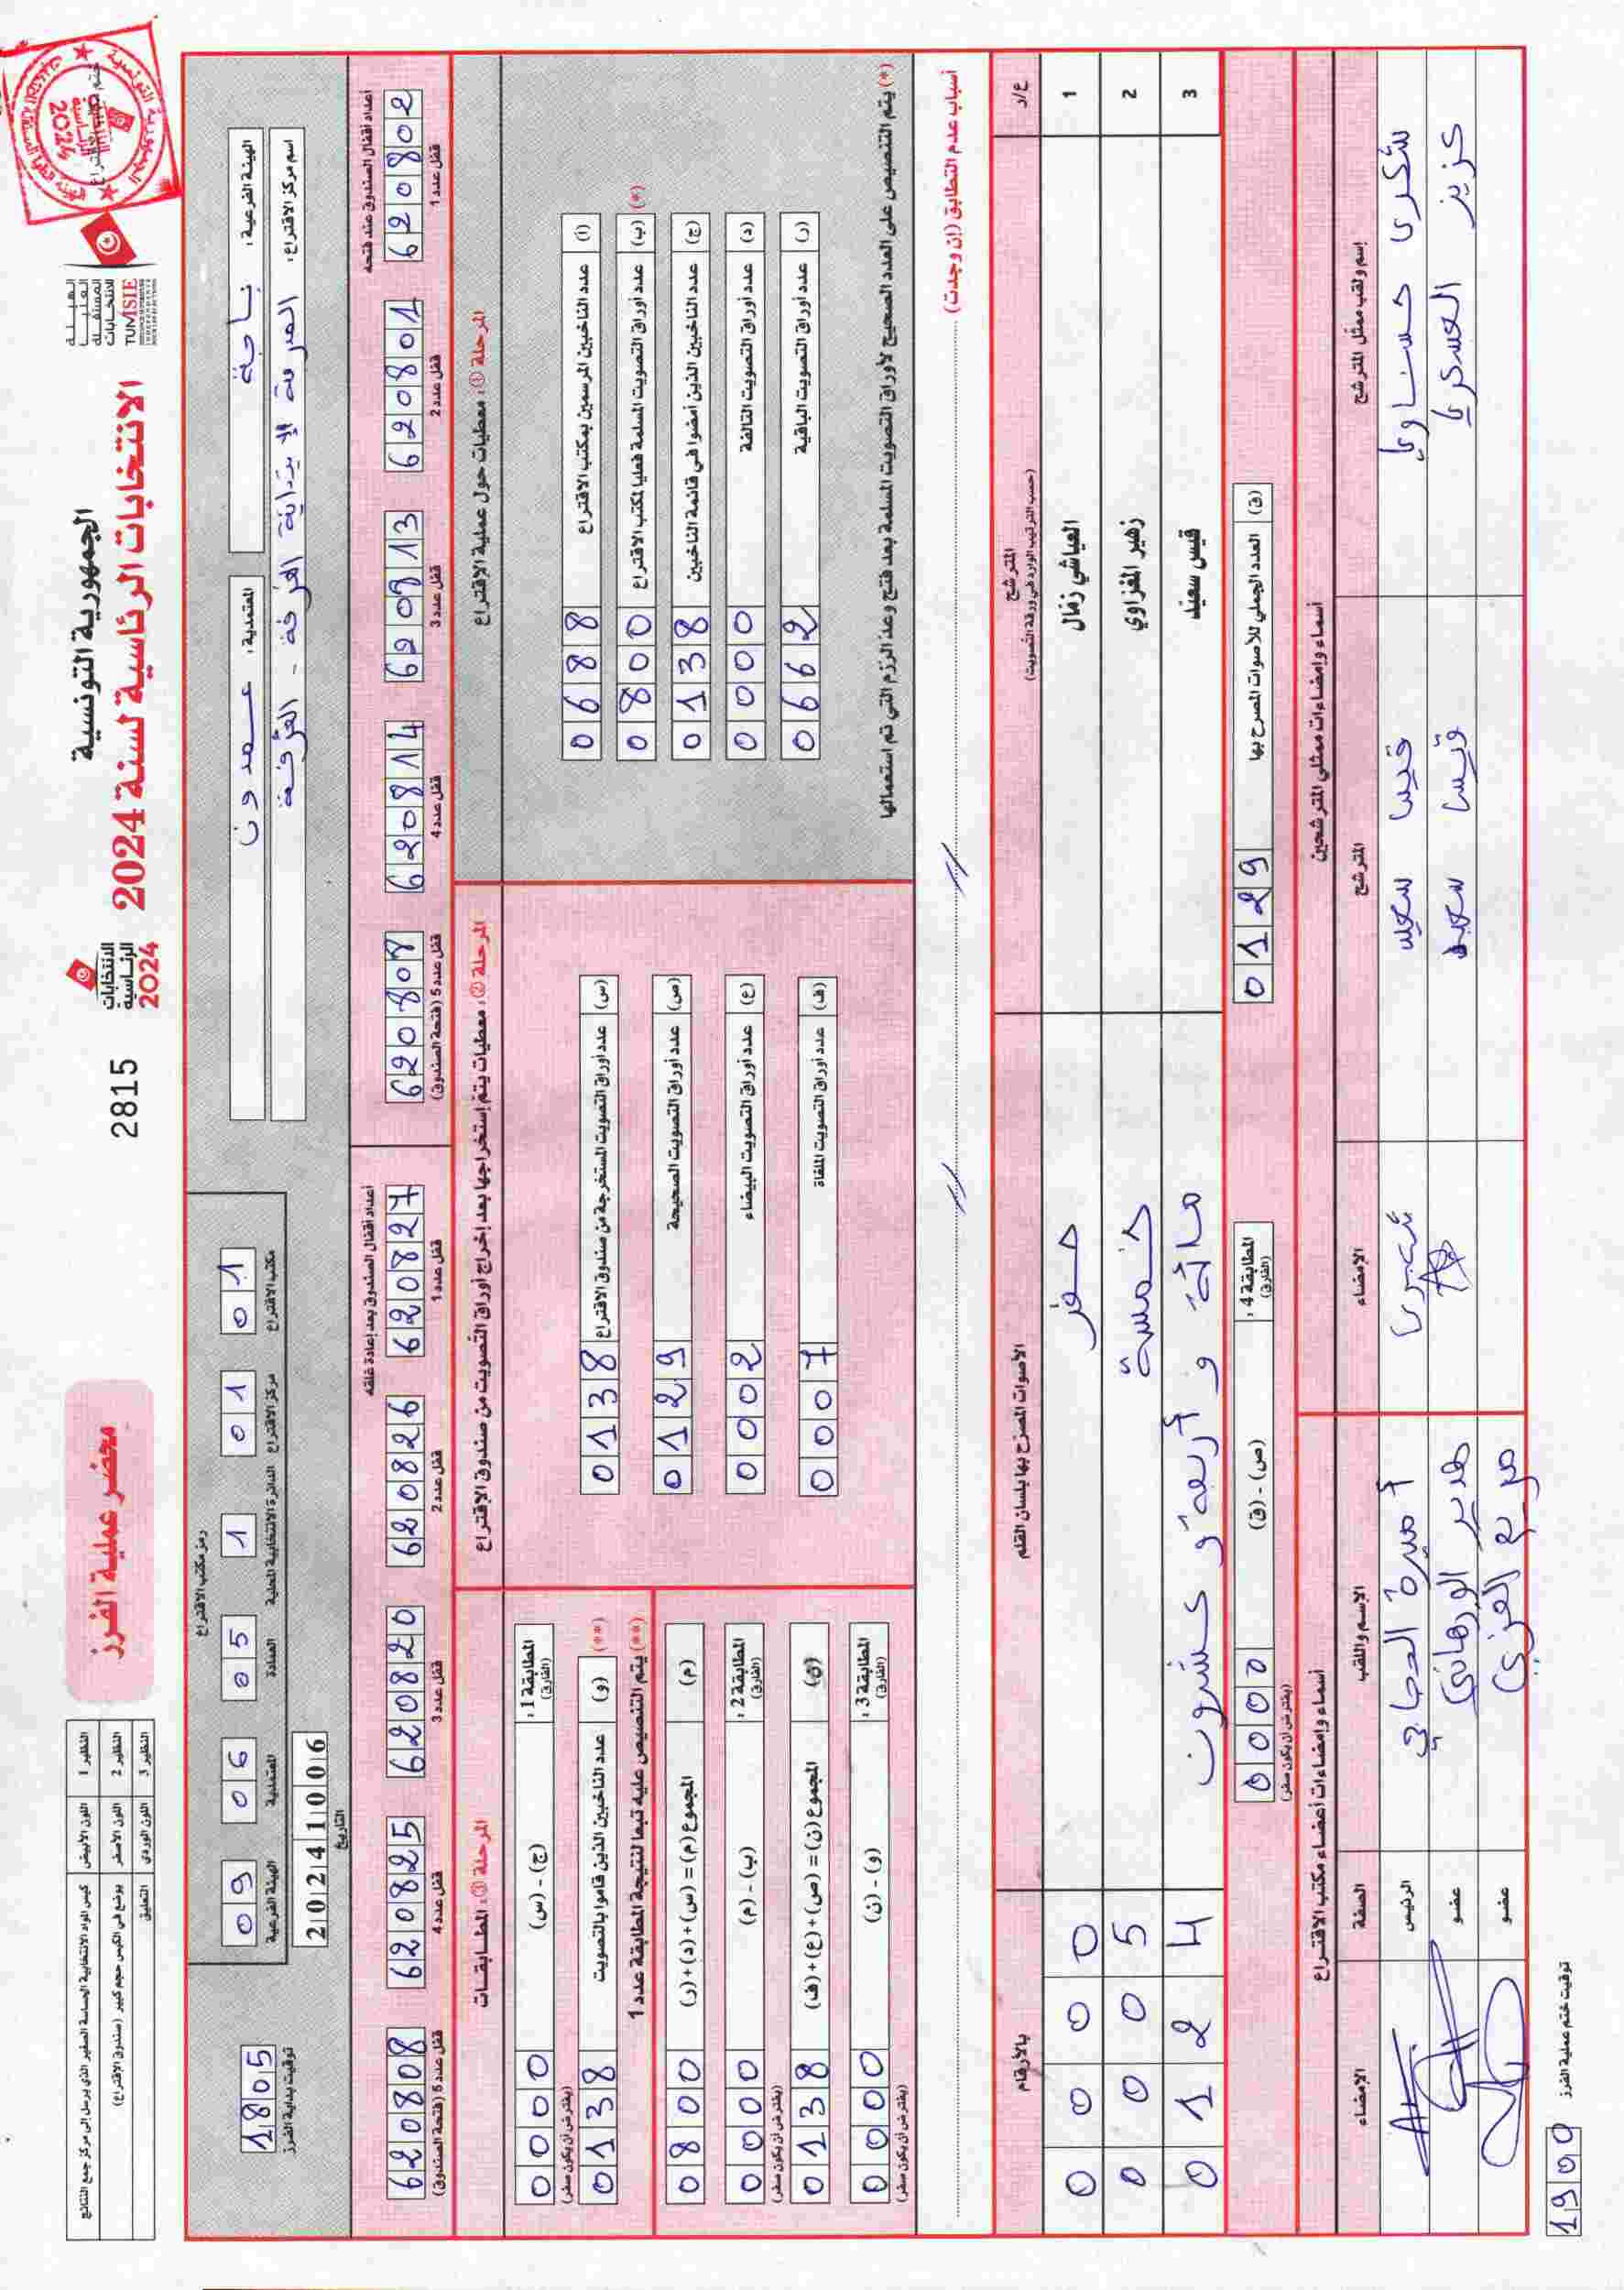 الجمهورية التونسية
الانتخابات الرئاسية لسنة 2024
الهيئة
العليا
المستقلة
للانتخابات
TUNISIE
الانتخابات
الرئاسية
2024
2815
محضر عملية الفرز
النظير 1 اللون الأبيض كيس المواد الانتخابية الحساسة الصغير الذي يرسل إلى مركز جمع النتائج
النظير 2 اللون الأصفر يوضع في الكيس حجم كبير (صندوق الاقتراع)
النظير 3 اللون الوردي التعليق
الهيئة الفرعية: باجة
المعتمدية: عمدون
اسم مركز الاقتراع: المدرسة الابتدائية
رمز مكتب الاقتراع
مكتب الاقتراع 01
مركز الاقتراع 01
الدائرة الانتخابية المحلية 1
العمادة 05
المعتمدية 06
الهيئة الفرعية 09
20241006
التاريخ
1805
توقيت بداية الفرز
أعداد أقفال الصندوق عند فتحه
620802 قفل عدد 1
620801 قفل عدد 2
620813 قفل عدد 3
620814 قفل عدد 4
620808 قفل عدد 5 (فتحة الصندوق)
أعداد أقفال الصندوق بعد إعادة غلقه
620827 قفل عدد 1
620826 قفل عدد 2
620820 قفل عدد 3
620825 قفل عدد 4
620808 قفل عدد 5 (فتحة الصندوق)
المرحلة ①: معطيات حول عملية الاقتراع
(أ) عدد الناخبين المرسمين بمكتب الاقتراع 0688
(ب) عدد أوراق التصويت المسلمة فعليا لمكتب الاقتراع 0800 (*)
(ج) عدد الناخبين الذين أمضوا في قائمة الناخبين 0138
(د) عدد أوراق التصويت التالفة 0000
(ر) عدد أوراق التصويت الباقية 0662
(*) يتم التنصيص على العدد الصحيح لأوراق التصويت المسلمة بعد فتح وعدّ الرزم التي تم استعمالها
المرحلة ②: معطيات يتمّ إستخراجها بعد إخراج أوراق التصويت من صندوق الاقتراع
(س) عدد أوراق التصويت المستخرجة من صندوق الاقتراع 0138
(ص) عدد أوراق التصويت الصحيحة 0129
(ع) عدد أوراق التصويت البيضاء 0002
(ف) عدد أوراق التصويت الملغاة 0007
المرحلة ③: المطابقات
المطابقة 1: (الفارق) (ج) - (س) 0000
(يفترض أن يكون صفر)
(**) (و) عدد الناخبين الذين قاموا بالتصويت 0138
(**) يتم التنصيص عليه تبعا لنتيجة المطابقة عدد 1
(م) المجموع (م) = (س) + (د) + (ر) 0800
المطابقة 2: (الفارق) (ب) - (م) 0000
(يفترض أن يكون صفر)
(ن) المجموع (ن) = (ص) + (ع) + (ف) 0138
المطابقة 3: (الفارق) (و) - (ن) 0000
(يفترض أن يكون صفر)
أسباب عدم التطابق (إن وجدت)
ع/د المترشح الأصوات المصرّح بها بلسان القلم بالأرقام
(حسب الترتيب الوارد في ورقة التصويت)
1 العياشي زمّال صفر 0000
2 زهير المغزاوي خمسة 0005
3 قيس سعيّد مائة و أربعة و عشرون 0124
(ق) العدد الجملي للأصوات المصرح بها 0129
المطابقة 4: (الفارق) (ص) - (ق) 0000
(يفترض أن يكون صفر)
أسماء وإمضاءات ممثلي المترشحين
إسم ولقب ممثّل المترشح المترشح الإمضاء
شكري حسناوي قيس سعيد
عزيز العسكري قيس سعيد
أسماء وإمضاءات أعضاء مكتب الاقتراع
الإسم واللقب الصفة الإمضاء
أميرة الحاجي الرئيس
هدير الورهاني عضو
مريم العزيزي عضو
توقيت ختم عملية الفرز 1900